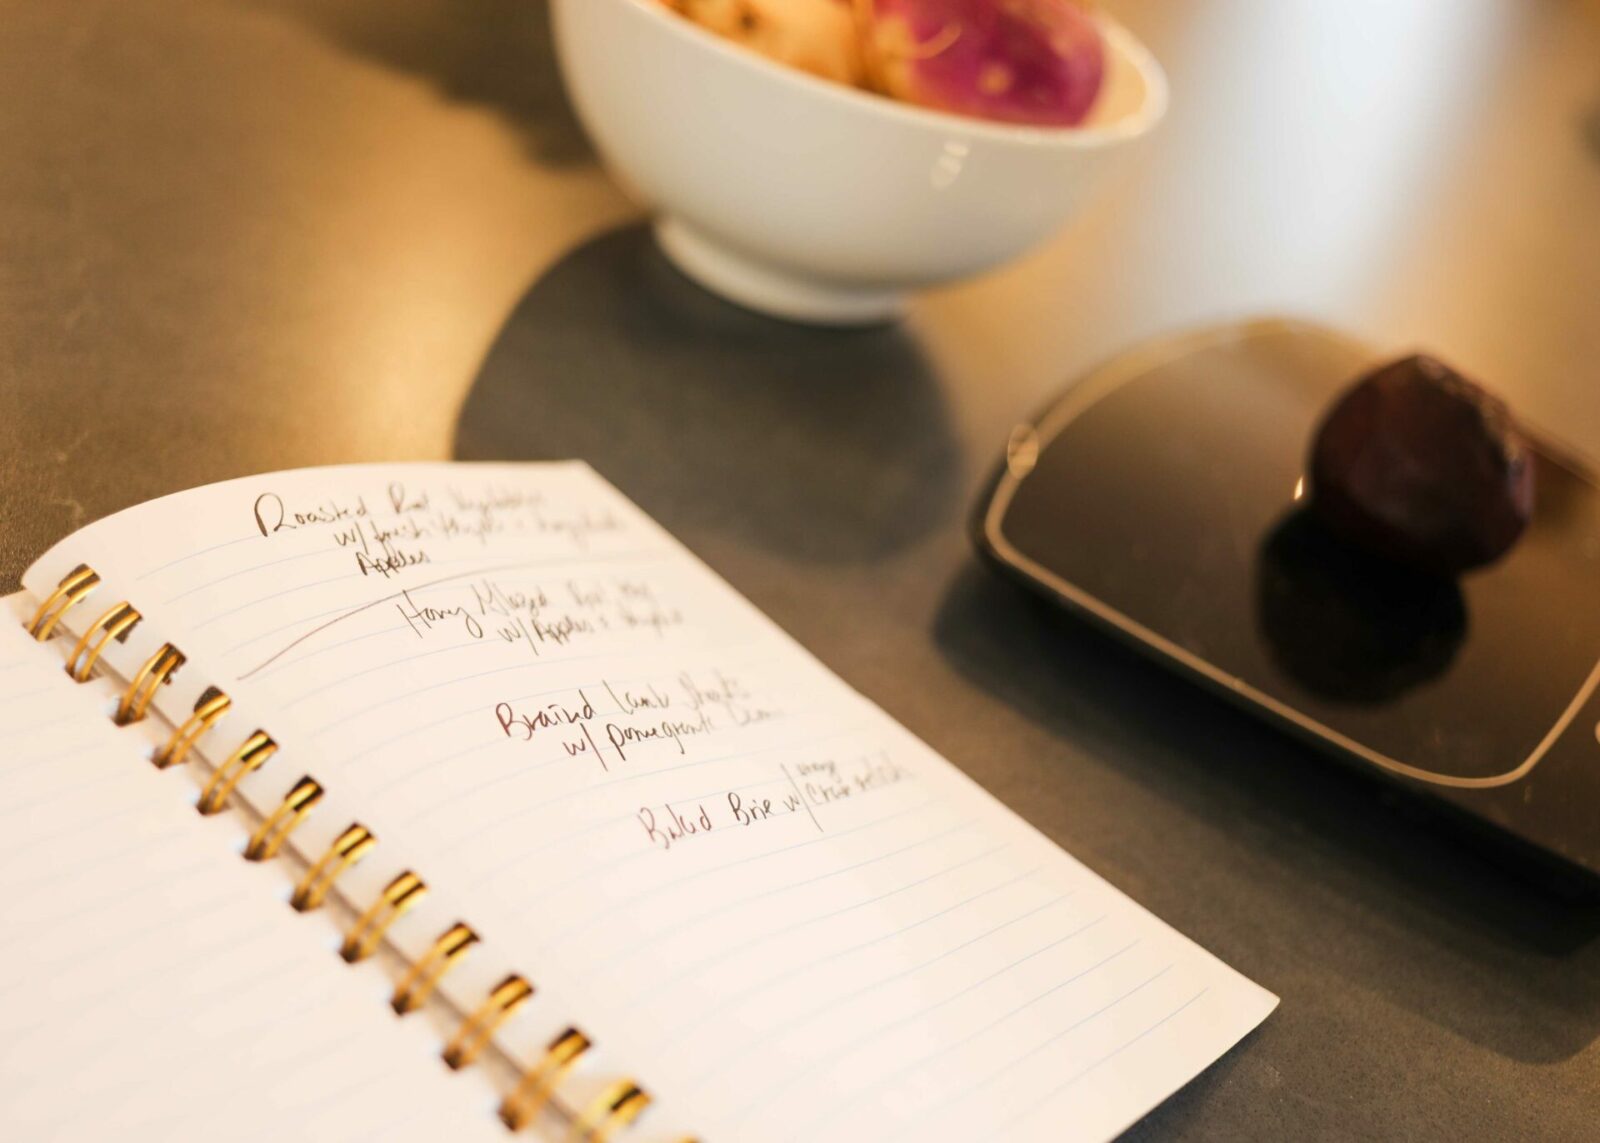 Roasted Root Vegetables
w/ fresh thyme +
Apples
Honey Glazed Root
w/ Apples + thyme
Braised Lamb Shanks
w/ pomegranate
Baked Brie w/ Honey